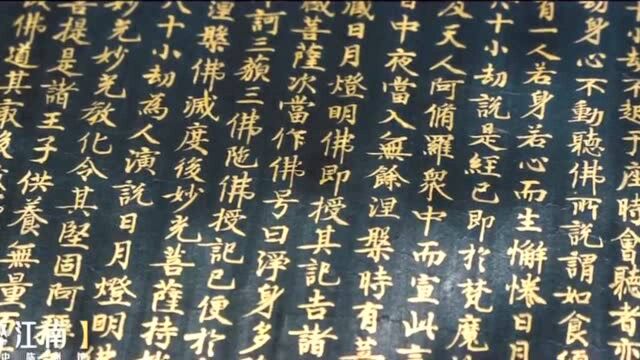 小劫不起于座時會聽者亦
劫身心不動聽佛所說謂如食
有一人若身若心而生懈惓日月
六十小劫說是經已即於梵魔
及天人阿脩羅衆中而宣此言
日中夜當入無餘涅槃時有菩
藏日月燈明佛即授其記告諸
藏菩薩次當作佛号曰淨身多
訶三藐三佛陁佛授記已便於
涅槃佛滅度後妙光菩薩持
八十小劫為人演說日月燈明
妙光妙光教化令其堅固阿
菩提是諸王子供養無量
佛道其最後
江南】